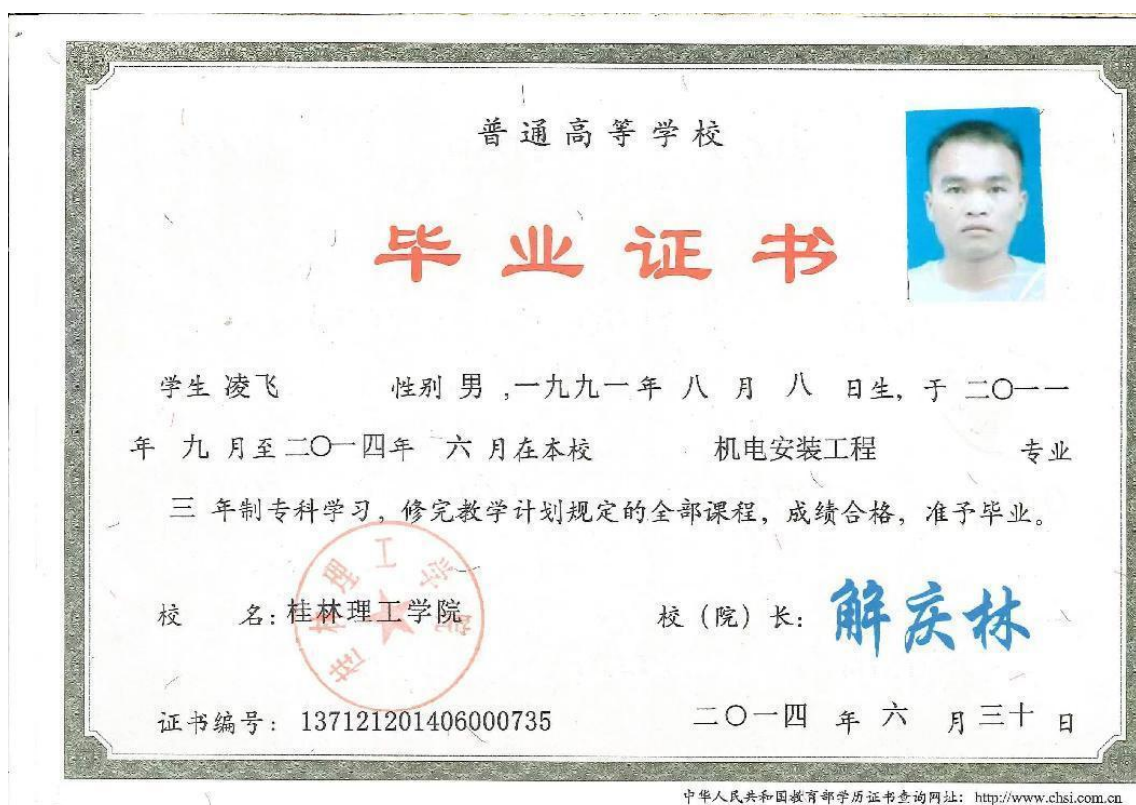 普通高等学校
毕业证书
学生 凌飞 性别 男 ,一九九一年 八 月 八 日生, 于 二〇一一
年 九 月至二〇一四年 六 月在本校 机电安装工程 专业
三 年制专科学习, 修完教学计划规定的全部课程, 成绩合格, 准予毕业。
桂林理工学院
校 名: 桂林理工学院 校 (院) 长: 解庆林
证书编号: 137121201406000735 二〇一四 年 六 月 三十 日
中华人民共和国教育部学历证书查询网址: http://www.chsi.com.cn